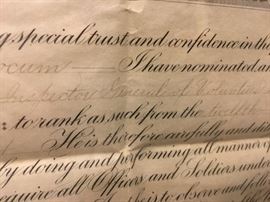 g special trust and confidence in the
ocum I have nominated, an
Inspector General of Volunteers
to rank as such from the twelfth
He is therefore carefully and dil
by doing and performing all manner of
equire all Officers and Soldiers under
he is to observe and follow